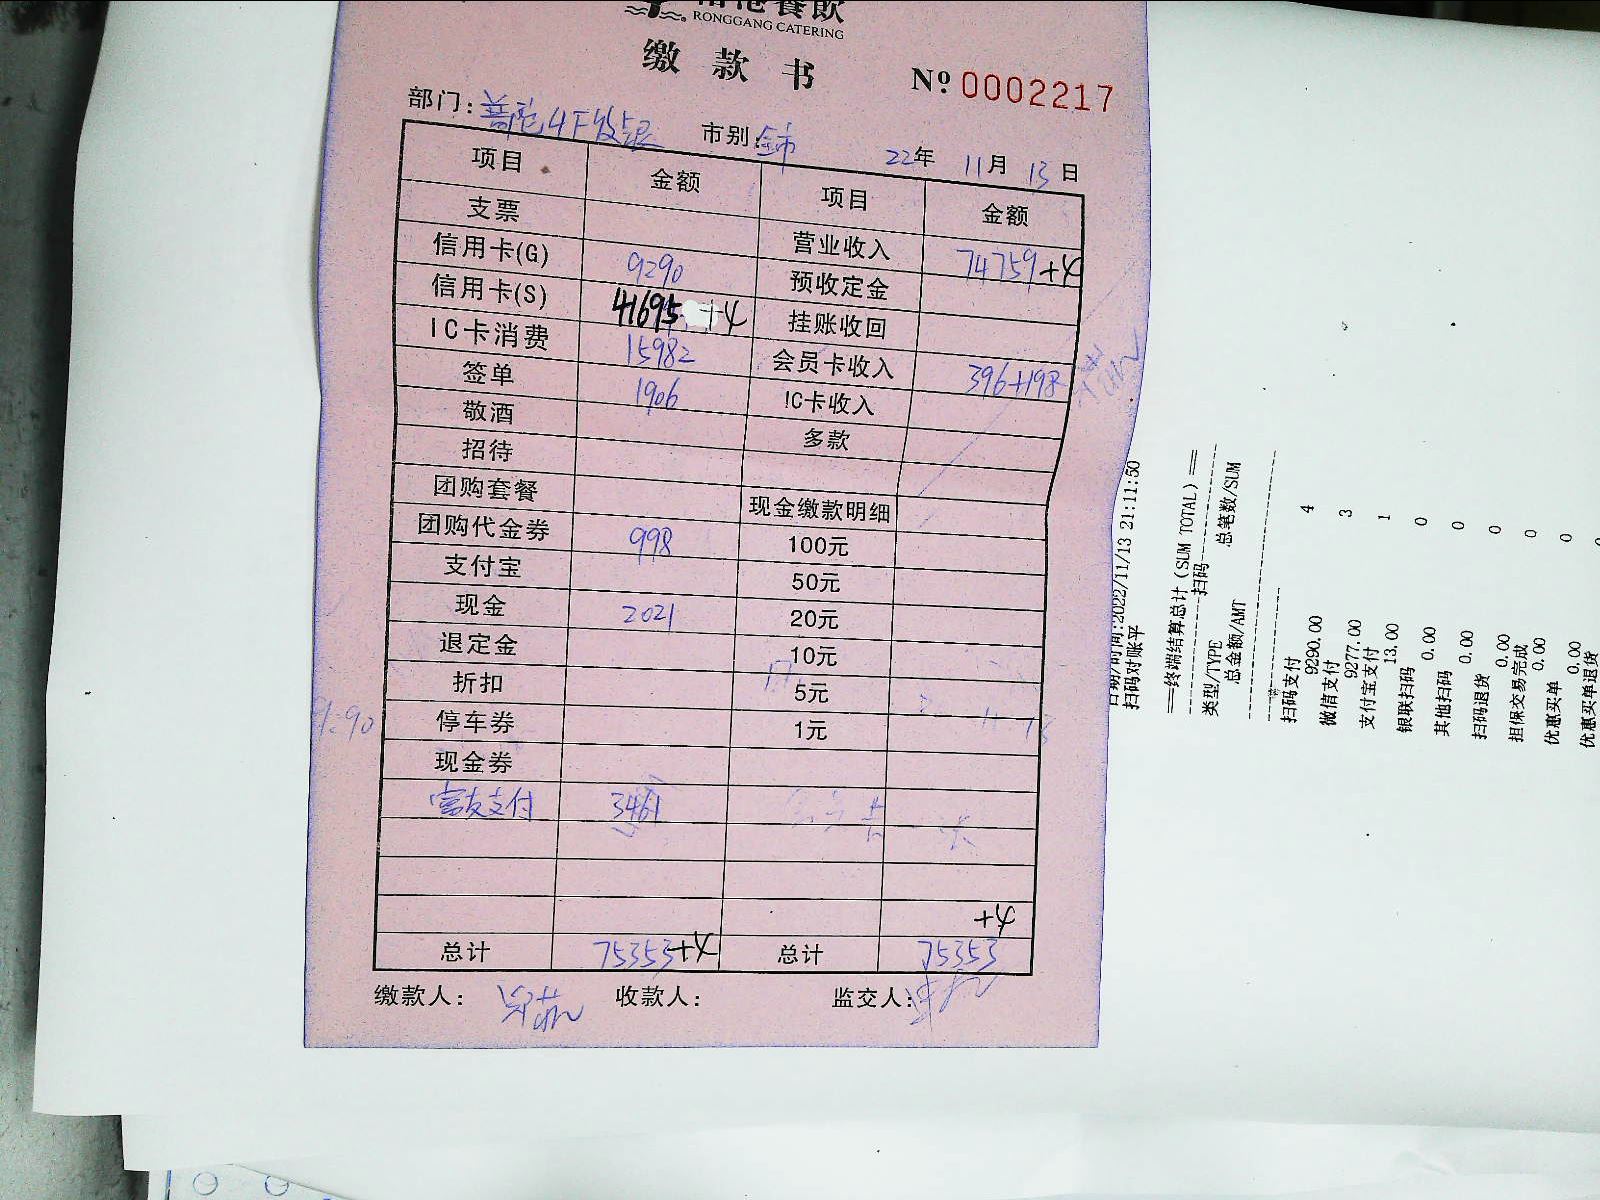 餐飲
RONGGANG CATERING
缴款书 № 0002217
部门: 市别: 22年 11月 13日
项目 金额 项目 金额
支票 营业收入 74759+4
信用卡(G) 9290 预收定金
信用卡(S) 41695 +4 挂账收回
IC卡消费 15982 会员卡收入 396+198
签单 1906 IC卡收入
敬酒 多款
招待
团购套餐 现金缴款明细
团购代金券 998 100元
支付宝 50元
现金 2021 20元
退定金 10元
折扣 5元
停车券 1元
现金券
富友支付 3461
+4
总计 75353+4 总计 75353
缴款人: 收款人: 监交人:
日期/时间:2022/11/13 21:11:50
扫码对账平
==终端结算总计(SUM TOTAL)==
扫码
类型/TYPE 总笔数/SUM
总金额/AMT
扫码支付 4
9290.00
微信支付 3
9277.00
支付宝支付 1
13.00
银联扫码 0
0.00
其他扫码 0
0.00
扫码退货 0
0.00
担保交易完成 0
0.00
优惠买单 0
0.00
优惠买单退货